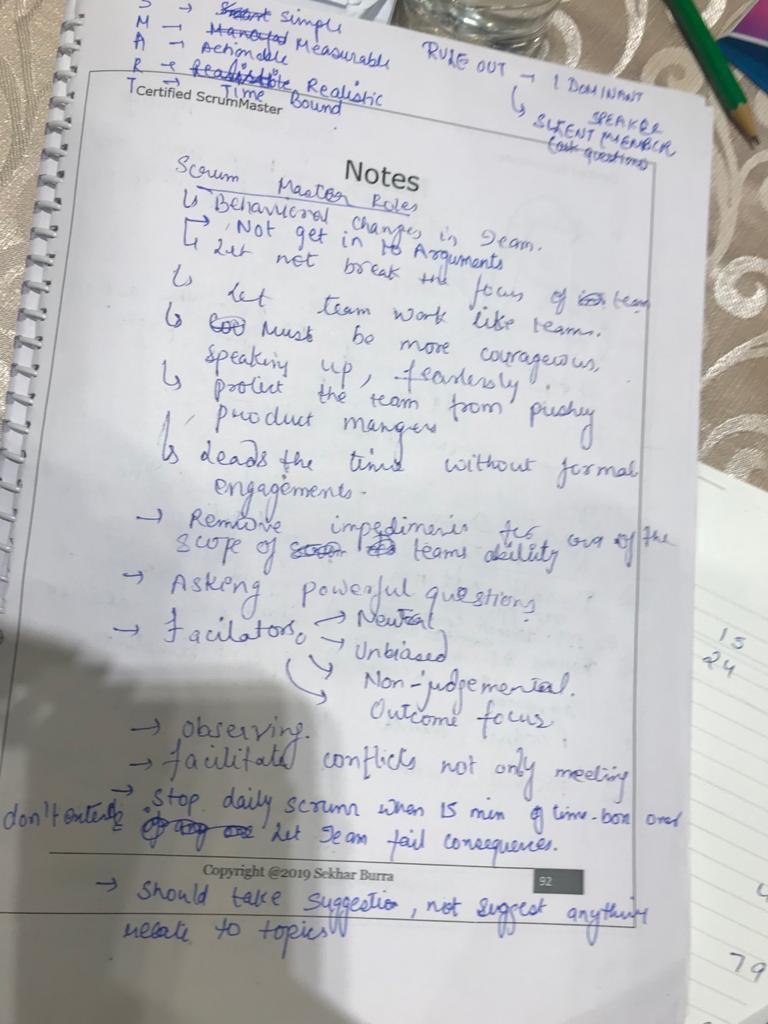 S → Simple
M — Measurable
A — Actionable
R → Realistic
T → Time Bound
RULE OUT → 1 DOMINANT SPEAKER
↳ SILENT MEMBER
(ask questions)
Certified ScrumMaster
Notes
Scrum Master Roles
↳ Behavioral changes in Team.
→ Not get in to Arguments
↳ Let not break the focus of team
↳ Let team work like teams.
↳ Must be more courageous,
speaking up, fearlessly.
↳ protect the team from pushy
product mangers
↳ Leads the time without formal
engagements.
→ Remove impediments out of the
scope of teams ability
→ Asking powerful questions
→ facilators → Neutral
→ Unbiased
→ Non-judgemental.
→ Outcome focus
→ Observing.
→ facilitate conflicts not only meeting
→ Stop daily scrum when 15 min of time-box over
don't extend Let Team fail consequences.
Copyright @2019 Sekhar Burra
92
→ Should take suggestion, not suggest anything
relate to topics
15
24
79